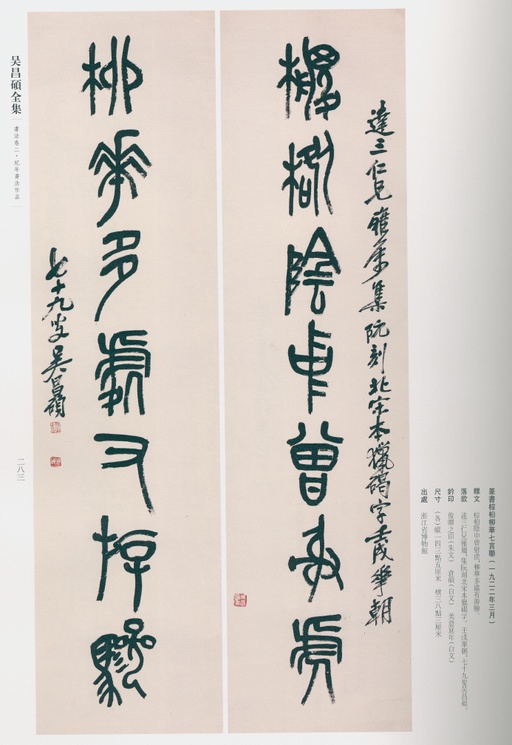 篆書棕栢柳華七言聯(一九二二年三月)
釋文 棕栢陰中曾射虎,柳華多處有游驂。
落款 達三仁兄雅屬,集阮刻北宋本獵碣字,壬戌華朝,七十九叟吳昌碩。
鈐印 俊卿之印(朱文) 倉碩(白文) 美意延年(白文)
尺寸 (各)縱一四三點五厘米 橫三八點三厘米
出處 浙江省博物館
達三仁兄雅屬集阮刻北宋本獵碣字壬戌華朝
棕栢陰中曾射虎
柳華多處有游驂
七十九叟吳昌碩
吳昌碩全集
書法卷二·紀年書法作品
二八三